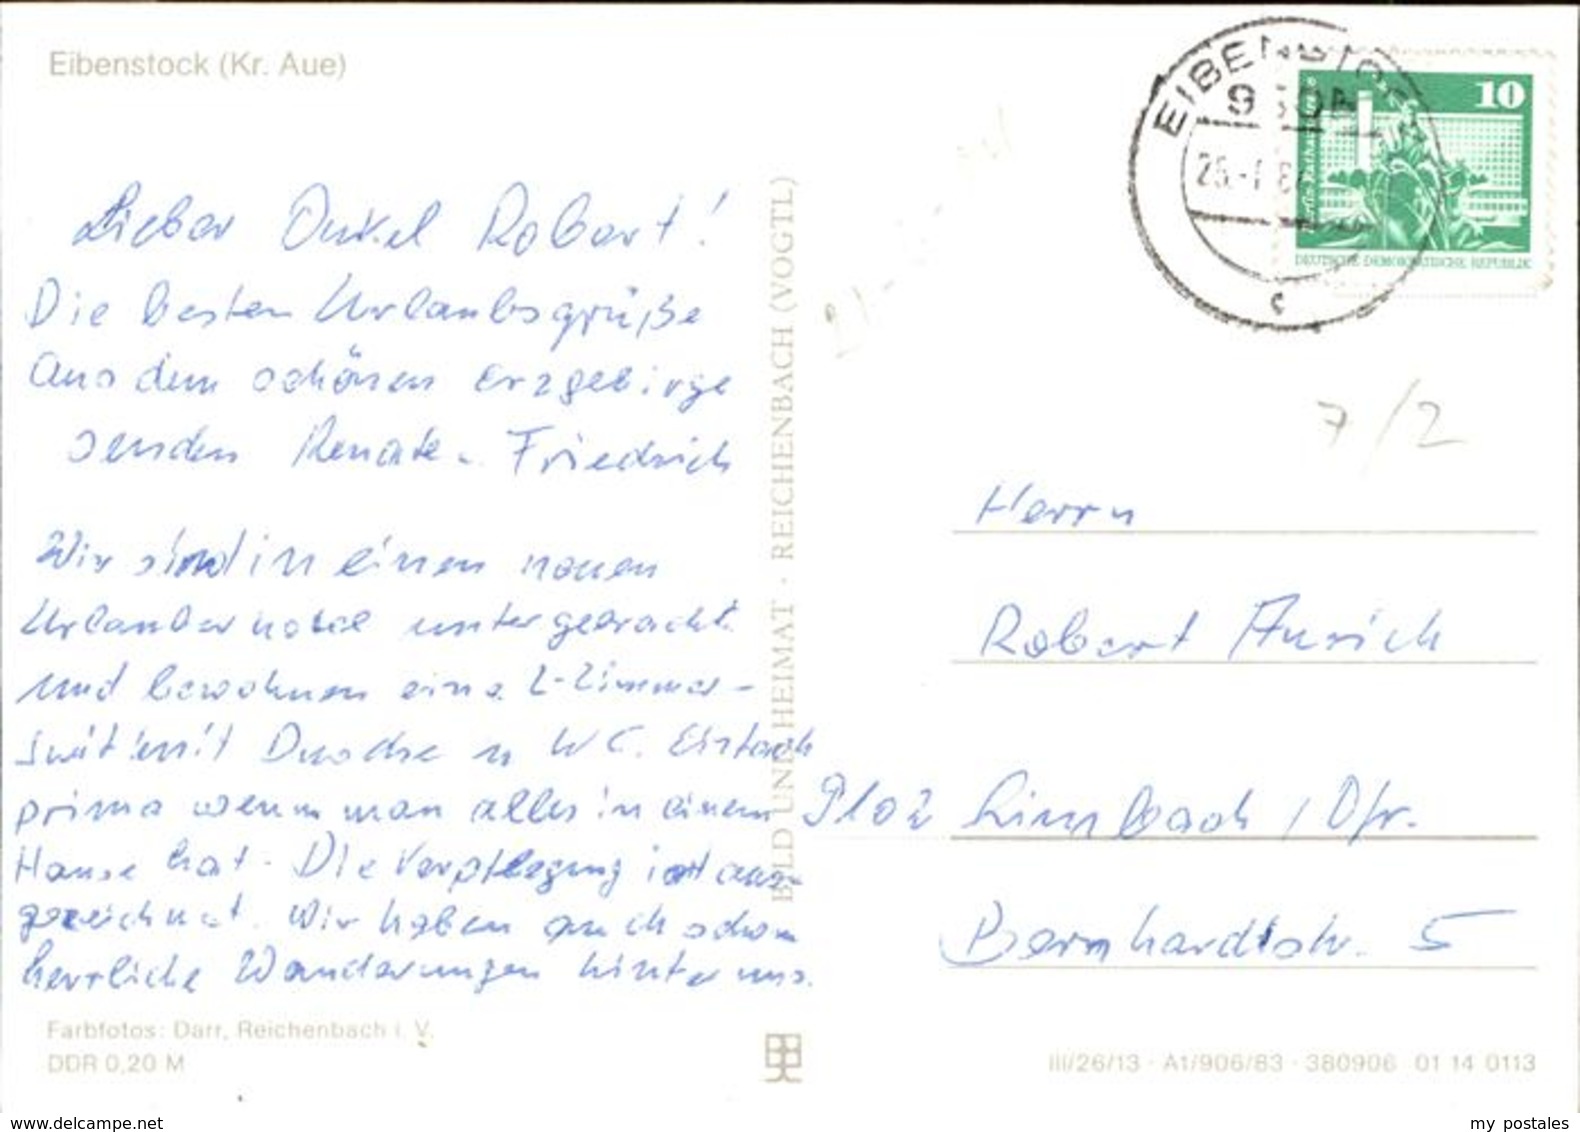 Eibenstock (Kr. Aue)
Lieber Onkel Robert!
Die besten Urlaubsgrüße
aus dem schönen Erzgebirge
senden Renate u. Friedrich
Wir sind in einem neuen
Urlauberhotel untergebracht
und bewohnen eine 2-Zimmer-
suit mit Dusche u WC. Einfach
prima wenn man alles in einem
Hause hat. Die Verpflegung ist aus-
gezeichnet. Wir haben auch schon
herrliche Wanderungen hinter uns.
Farbfotos: Darr, Reichenbach i. V.
DDR 0,20 M
BILD UND HEIMAT · REICHENBACH (VOGTL)
EIBENSTOCK
25.-
c
10
DEUTSCHE DEMOKRATISCHE REPUBLIK
7/2
Herrn
Robert
9102 Limbach / Ofr.
Bernhardtstr. 5
III/26/13 · A1/906/83 · 380906 01 14 0113
www.delcampe.net
my postales